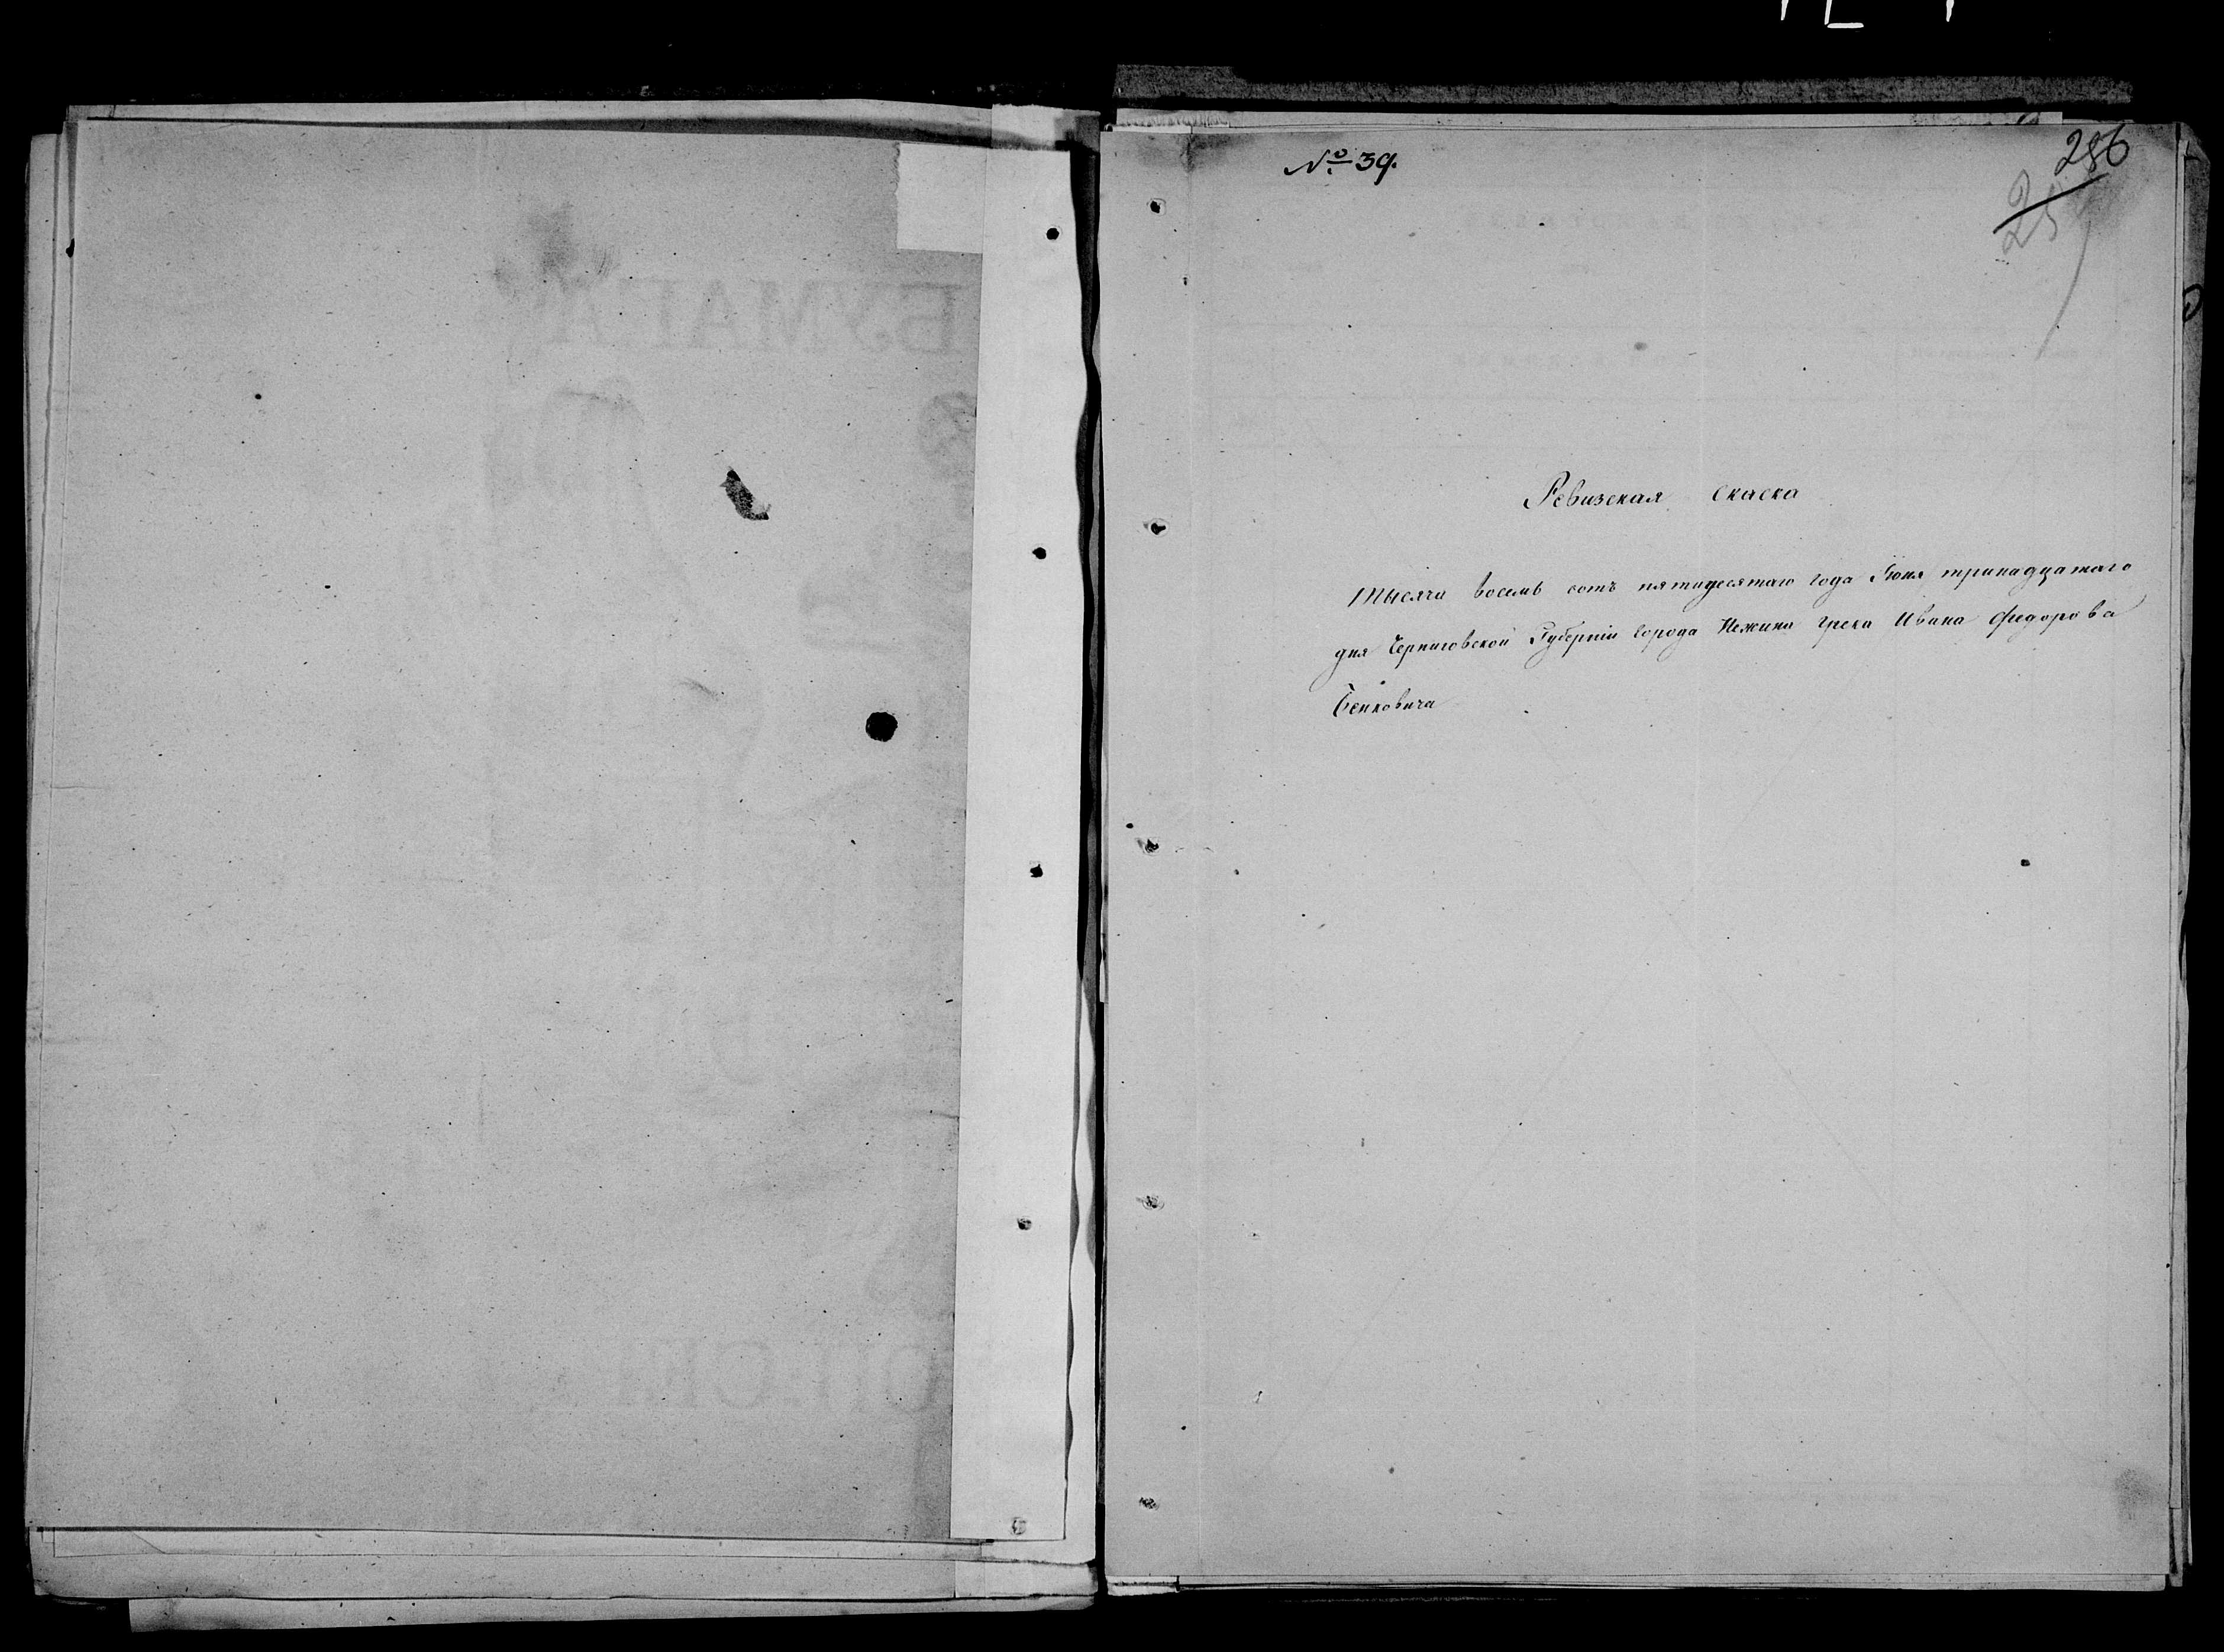 № 39.
286
Ревизская скаска
Тысяча восемь сотъ пятидесятаго года Іюня тринадцатаго
дня Черниговской Губерніи города Нежина грека Ивана Федорова
Бенковича